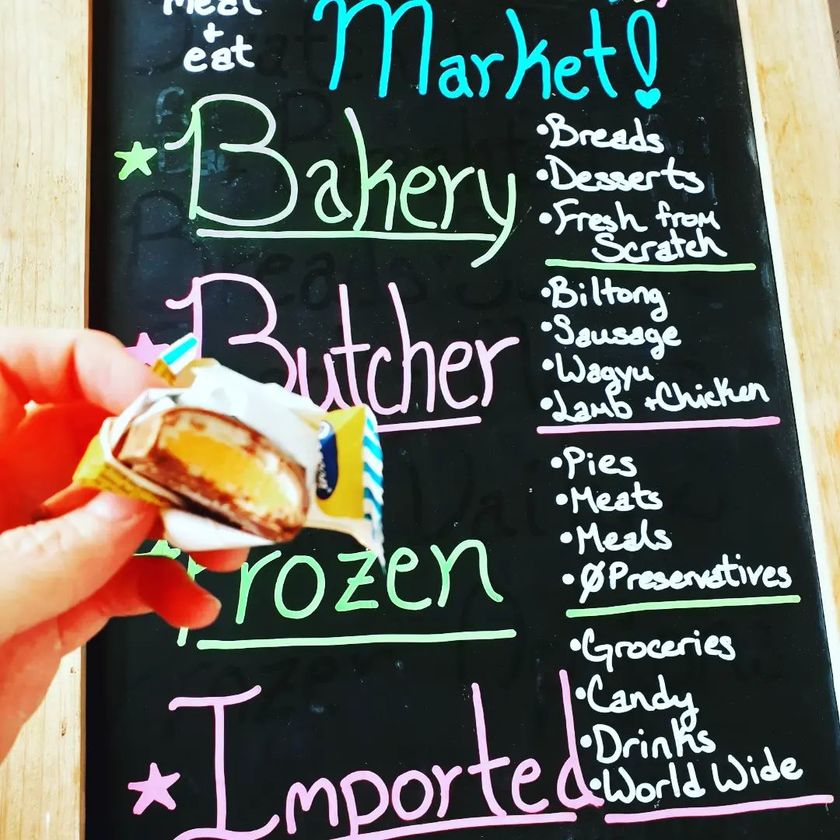 meat
+
eat
Market!
Bakery
•Breads
•Desserts
•Fresh from
Scratch
Butcher
•Biltong
•Sausage
•Wagyu
•Lamb + Chicken
Frozen
•Pies
•Meats
•Meals
•Ø Preservatives
Imported
•Groceries
•Candy
•Drinks
•World Wide